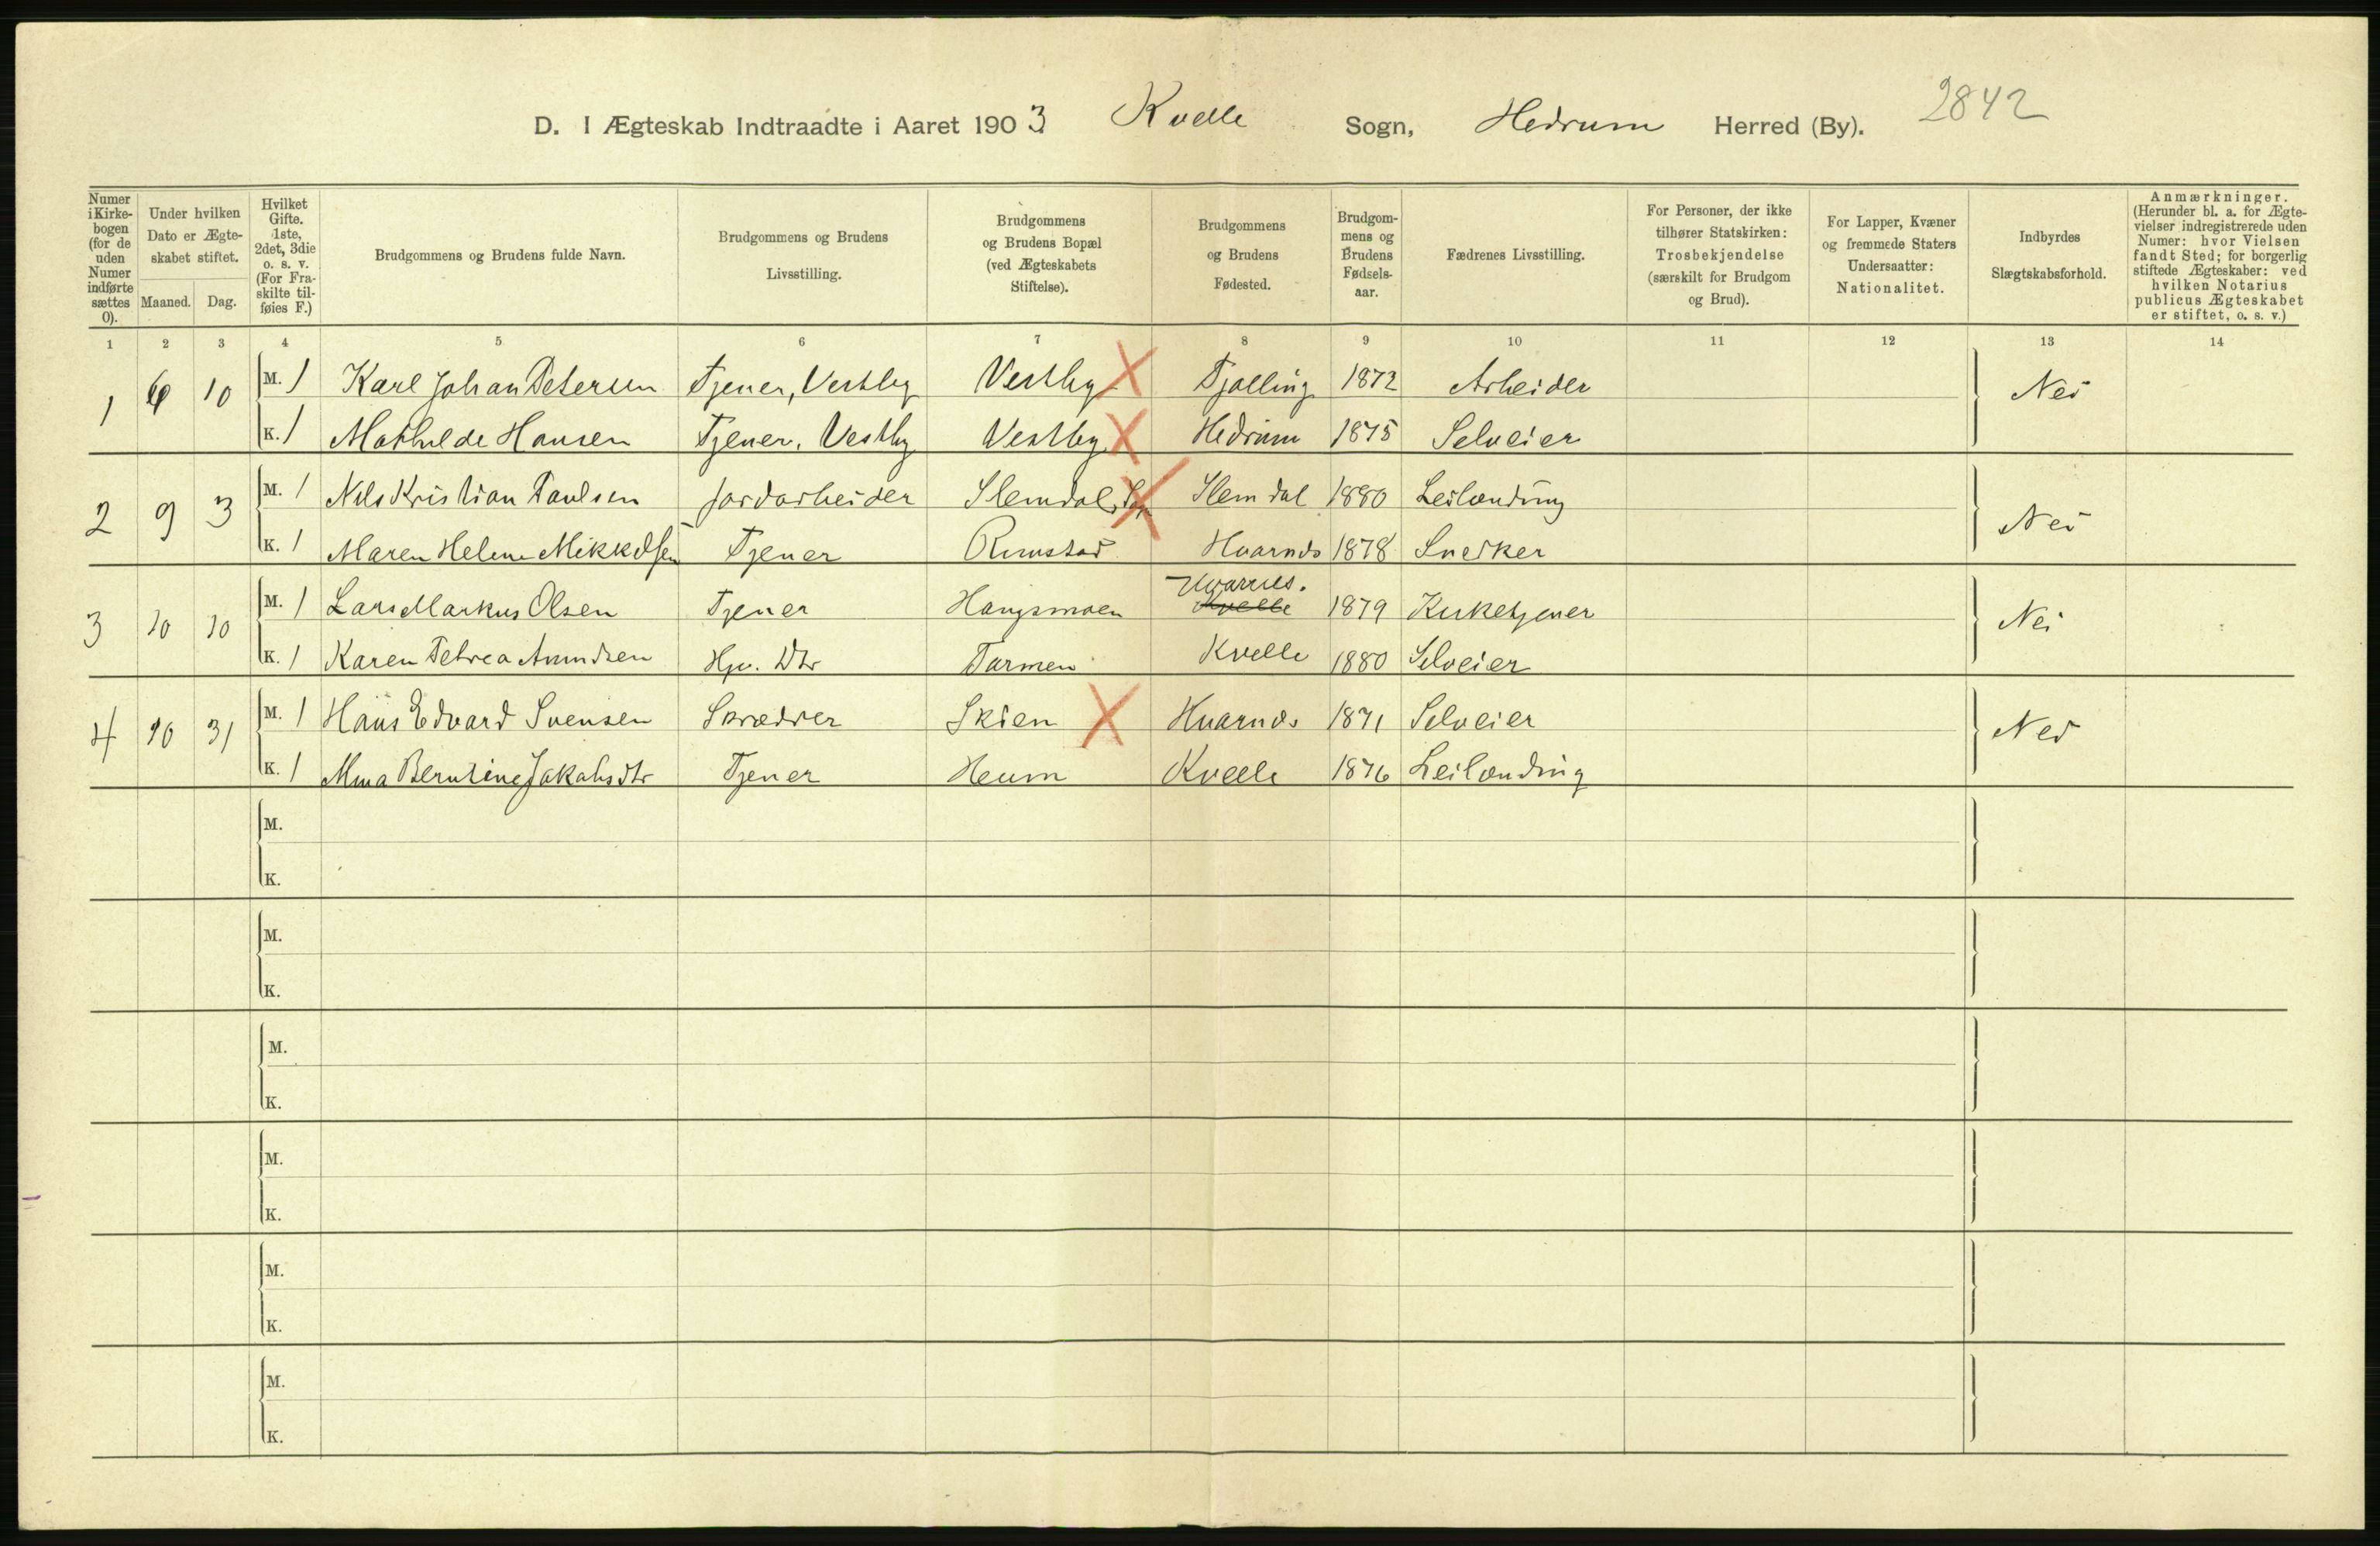 2842
D. I Ægteskab Indtraadte i Aaret 1903 Kvelle Sogn, Hedrum Herred (By).
Numer i Kirke-bogen (for de uden Numer indførte sættes 0).
Under hvilken Dato er Ægte-skabet stiftet.
Maaned. Dag.
Hvilket Gifte. 1ste, 2det, 3die o. s. v. (For Fra-skilte til-føies F.)
Brudgommens og Brudens fulde Navn.
Brudgommens og Brudens Livsstilling.
Brudgommens og Brudens Bopæl (ved Ægteskabets Stiftelse).
Brudgommens og Brudens Fødested.
Brudgom-mens og Brudens Fødsels-aar.
Fædrenes Livsstilling.
For Personer, der ikke tilhører Statskirken: Trosbekjendelse (særskilt for Brudgom og Brud).
For Lapper, Kvæner og fremmede Staters Undersaatter: Nationalitet.
Indbyrdes Slægtskabsforhold.
Anmærkninger. (Herunder bl. a. for Ægte-vielser indregistrerede uden Numer: hvor Vielsen fandt Sted; for borgerlig stiftede Ægteskaber: ved hvilken Notarius publicus Ægteskabet er stiftet, o. s. v.)
1 2 3 4 5 6 7 8 9 10 11 12 13 14
1 6 10 M. 1 Karl Johan Petersen Tjener, Vestby Vestby Tjølling 1872 Arbeider Nei
K. 1 Mathilde Hansen Tjener, Vestby Vestby Hedrum 1875 Selveier
2 9 3 M. 1 Nils Kristian Paulsen Jordarbeider Slemdal Slemdal 1880 Leilænding Nei
K. 1 Maren Helene Mikkelsen Tjener Rimstad Hvarnes 1878 Snedker
3 10 10 M. 1 Lars Markus Olsen Tjener Haugsmoen Hvarnes. Kvelle 1879 Kirketjener Nei
K. 1 Karen Petrea Amundsen Hjv. Dtr Tormen Kvelle 1880 Selveier
4 10 31 M. 1 Hans Edvard Svensen Skrædder Skien Hvarnes 1871 Selveier Nei
K. 1 Berntine Jakobsdtr Tjener Heum Kvelle 1876 Leilænding
M.
K.
M.
K.
M.
K.
M.
K.
M.
K.
M.
K.